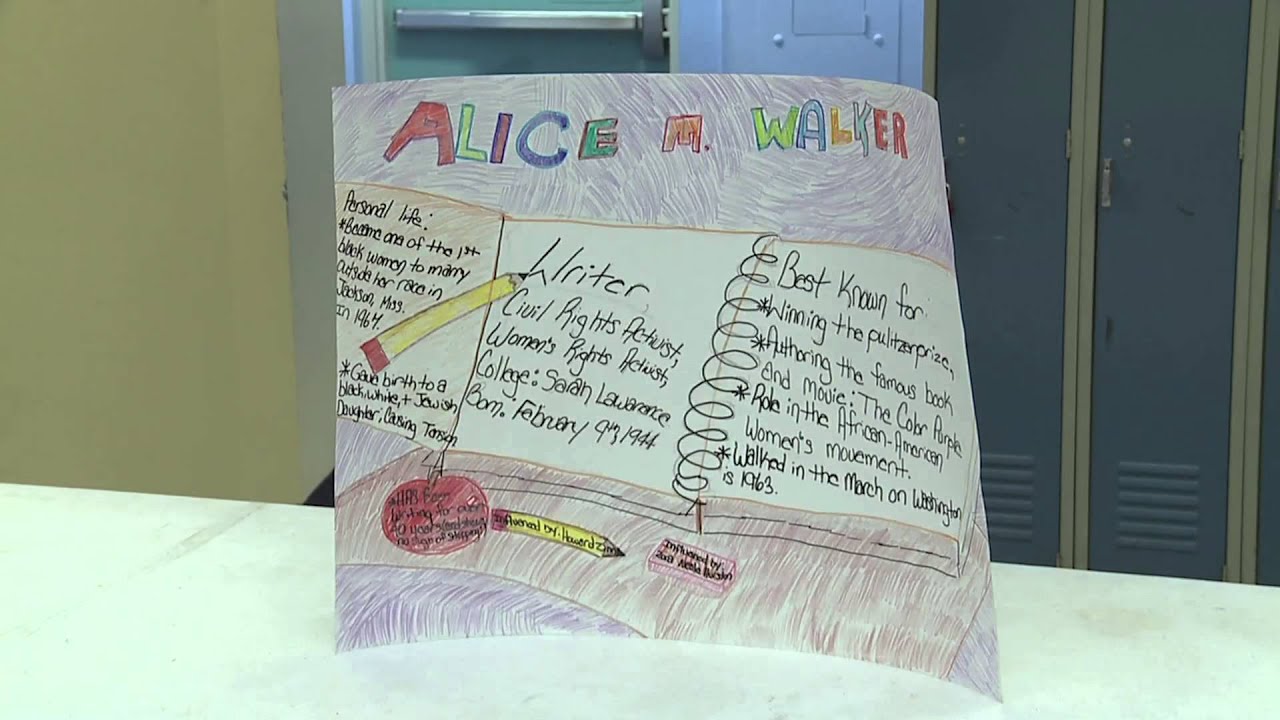 ALICE M. WALKER
Personal life:
*Became one of the 1st
black women to marry
outside her race in
Jackson, Miss.
In 1967.
*Gave birth to a
black, white, + Jewish,
Daughter, Causing Tension
Writer,
Civil Rights Activist,
Women's Rights Activist,
College: Sarah Lawarance
Born: February 9th, 1944
Best Known for:
*Winning the pulitzerprize,
*Authoring the famous book
and movie: The Color Purple
*Role in the African-American
Women's movement.
*Walked in the March on Washington
is 1963.
*HAS Been
Writing for over
40 years (and shows
no sign of stopping)
Influenced by: Howard Zinn
Influenced by:
Zora Neale Hurston